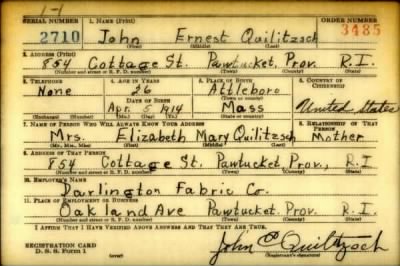 1-1
SERIAL NUMBER 1. NAME (Print) ORDER NUMBER
2710 John Ernest Quilitzsch 3485
(First) (Middle) (Last)
2. ADDRESS (Print)
854 Cottage St. Pawtucket, Prov. R.I.
(Number and street or R. F. D. number) (Town) (County) (State)
3. TELEPHONE 4. AGE IN YEARS 5. PLACE OF BIRTH 6. COUNTRY OF CITIZENSHIP
None 26 Attleboro
DATE OF BIRTH (Town or county)
Apr. 5 1914 Mass United States
(Exchange) (No.) (Mo.) (Day) (Yr.) (State or country)
7. NAME OF PERSON WHO WILL ALWAYS KNOW YOUR ADDRESS 8. RELATIONSHIP OF THAT PERSON
Mrs. Elizabeth Mary Quilitzsch Mother
(Mr., Mrs., Miss) (First) (Middle) (Last)
9. ADDRESS OF THAT PERSON
854 Cottage St. Pawtucket, Prov., R.I.
(Number and street or R. F. D. number) (Town) (County) (State)
10. EMPLOYER'S NAME
Darlington Fabric Co.
11. PLACE OF EMPLOYMENT OR BUSINESS
Oakland Ave Pawtucket. Prov. R.I.
(Number and street or R. F. D. number) (Town) (County) (State)
I AFFIRM THAT I HAVE VERIFIED ABOVE ANSWERS AND THAT THEY ARE TRUE.
REGISTRATION CARD John E Quilitzsch
D. S. S. Form 1 (Registrant's signature)